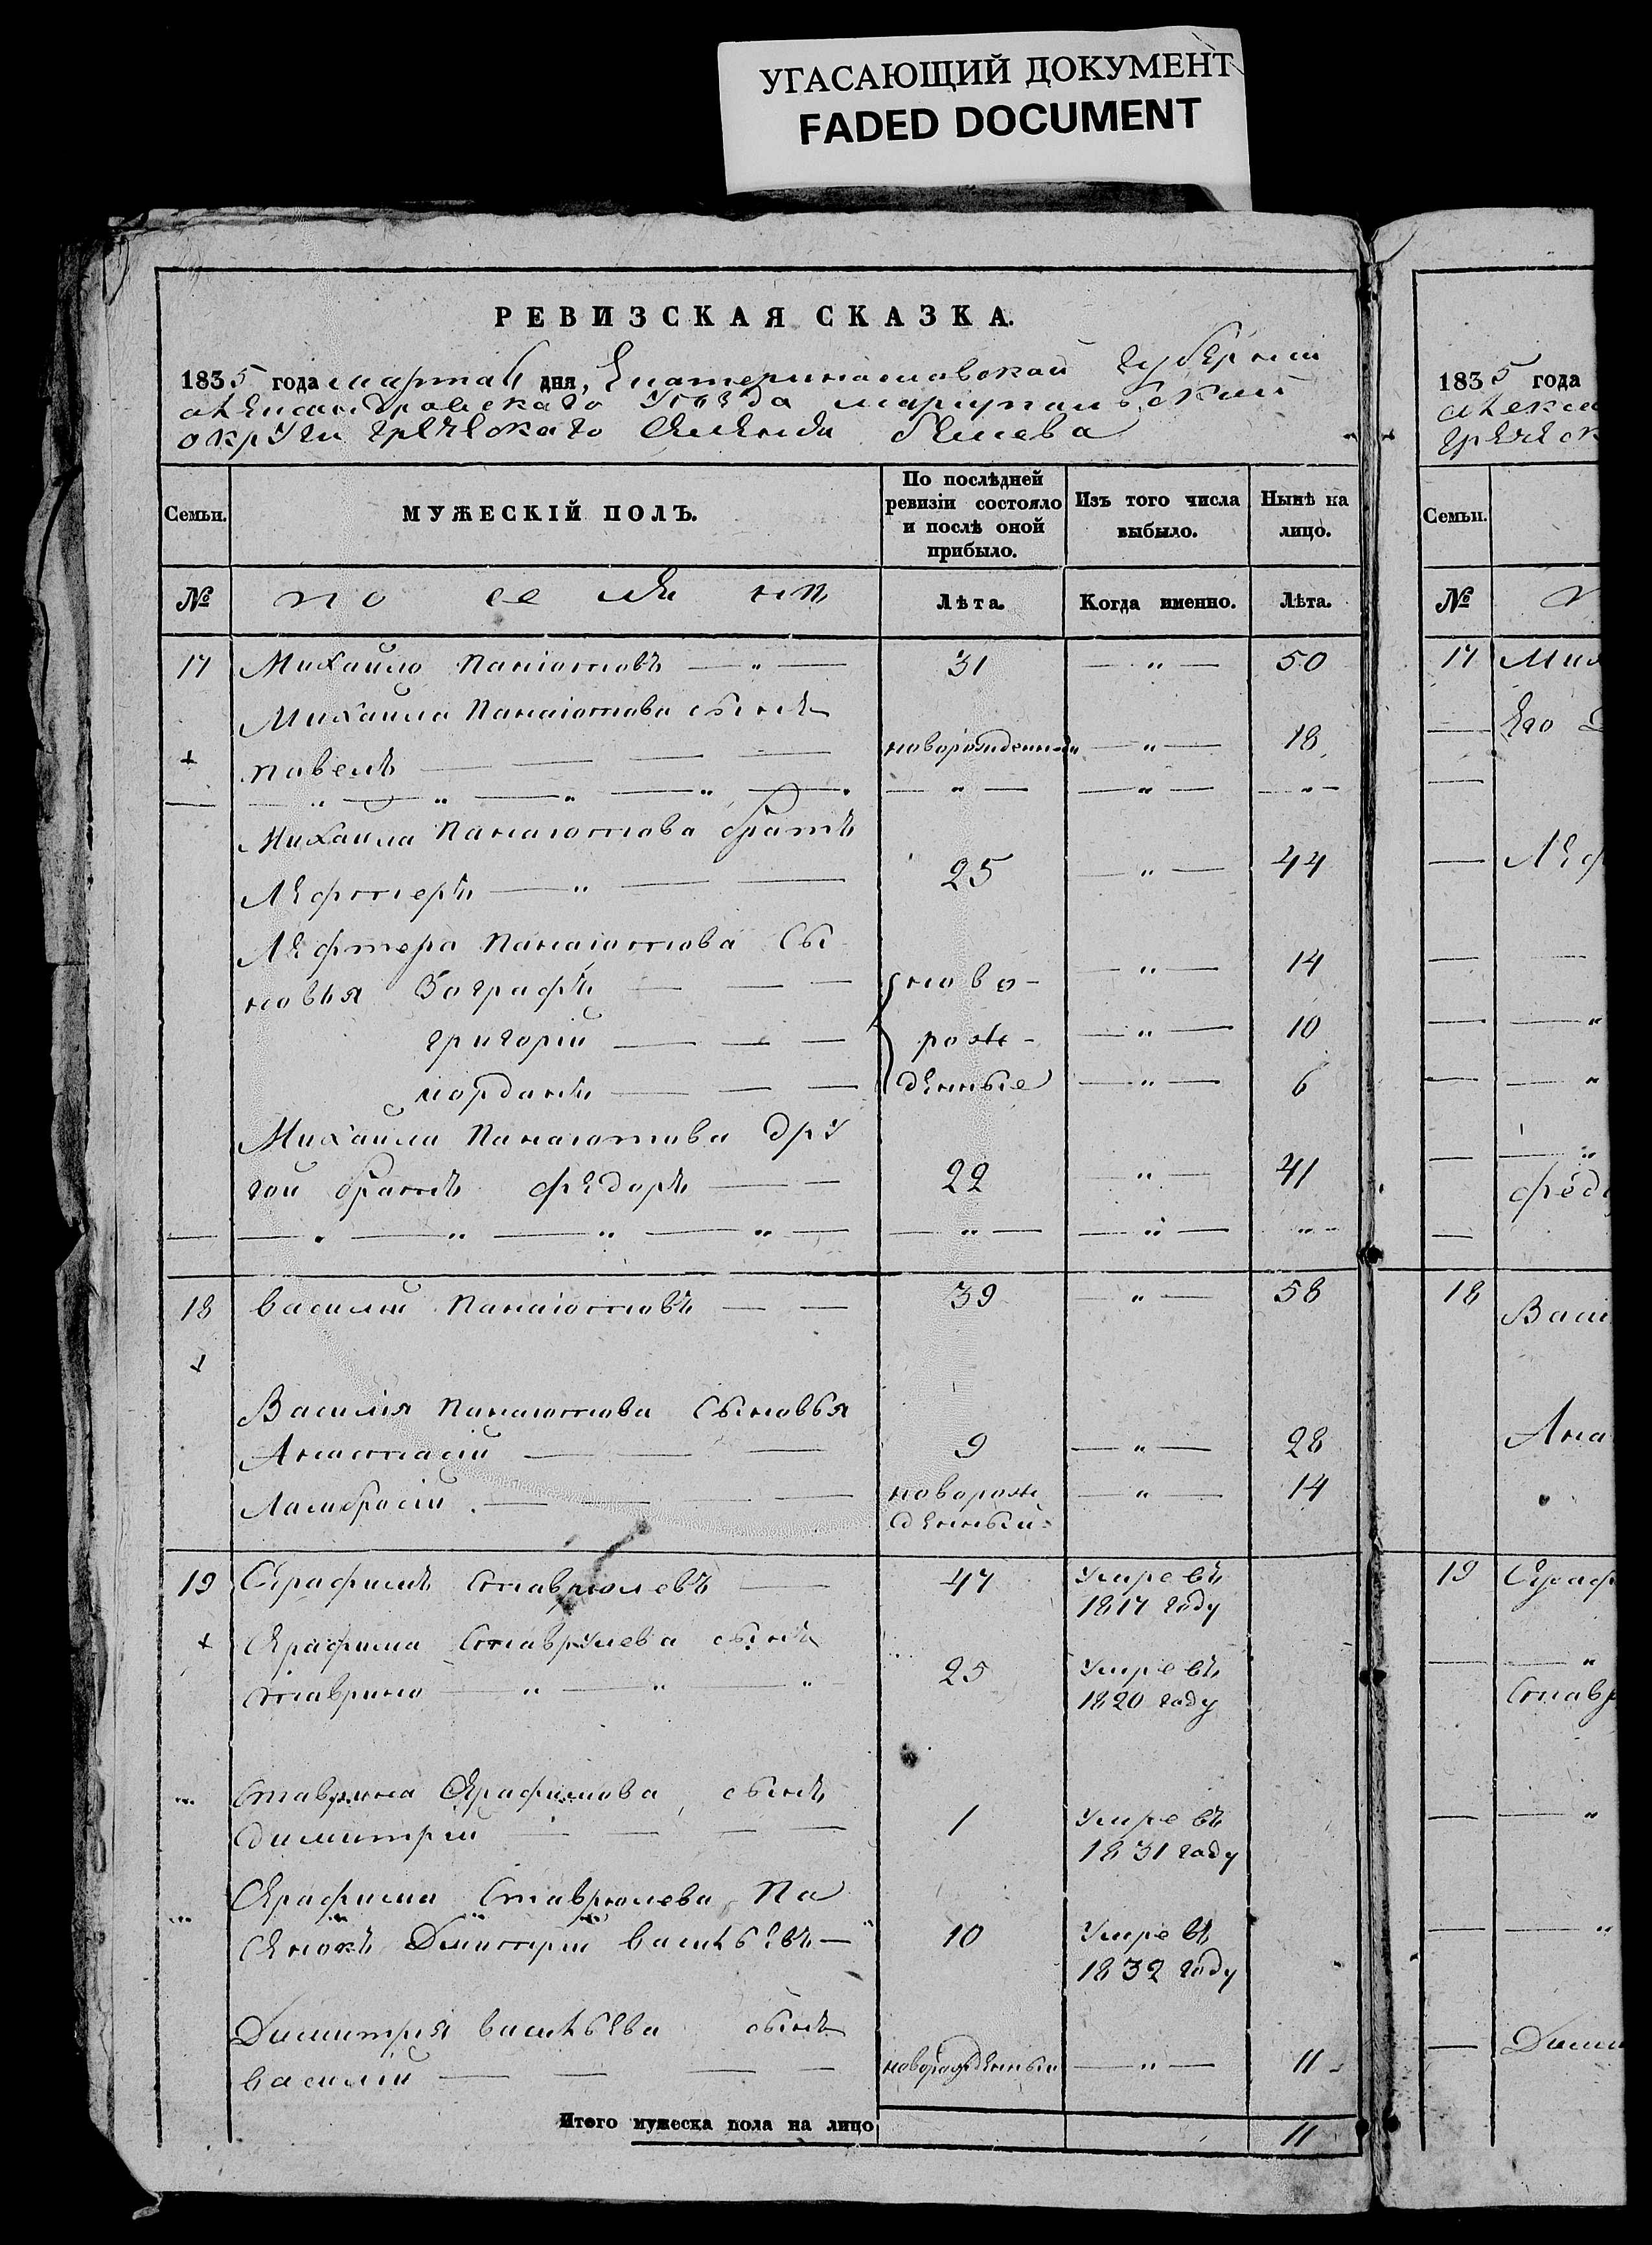 УГАСАЮЩИЙ ДОКУМЕНТ
FADED DOCUMENT
РЕВИЗСКАЯ СКАЗКА.
1835 года марта дня, Екатеринославской Губернии
александровскаго уезда мариупольской
округи греческаго селения бешева
Семьи.
МУЖЕСКІЙ ПОЛЪ.
По послѣдней ревизіи состояло и послѣ оной прибыло.
Изъ того числа выбыло.
Нынѣ на лицо.
№
Лѣта.
Когда именно.
Лѣта.
17 Михайло Панаіотовъ — " — 31 — " — 50
Михаила Панаіотова сынъ
+ павелъ новорожденный — " — 18
Михаила Панаіотова братъ
Лефтеръ — " — 25 — " — 44
Лефтера Панаіотова сы
новья Зографъ ново- — " — 14
григорій рож- — " — 10
иорданъ денные — " — 6
Михаила Панаіотова дру
гой братъ федоръ 22 — " — 41
18 василій Панаіотовъ 39 — " — 58
+
Василія Панаіотова сыновья
Анастасій 9 — " — 28
Ламбросій новорож — " — 14
денный
19 Серафимъ Ставрулевъ 47 Умре въ
1817 году
+ Серафима Ставрулева сынъ
ставрино 25 Умре въ
1820 году
Ставрина Серафимова сынъ
димитрій 1 Умре въ
1831 году
Серафима Ставрулева Па
сынокъ Димитрій васильевъ 10 Умре въ
1832 году
Димитрія васильева сынъ
василій новорожденный — " — 11
Итого мужеска пола на лицо 11
1835 года
Семьи.
№
17
Его
18
19